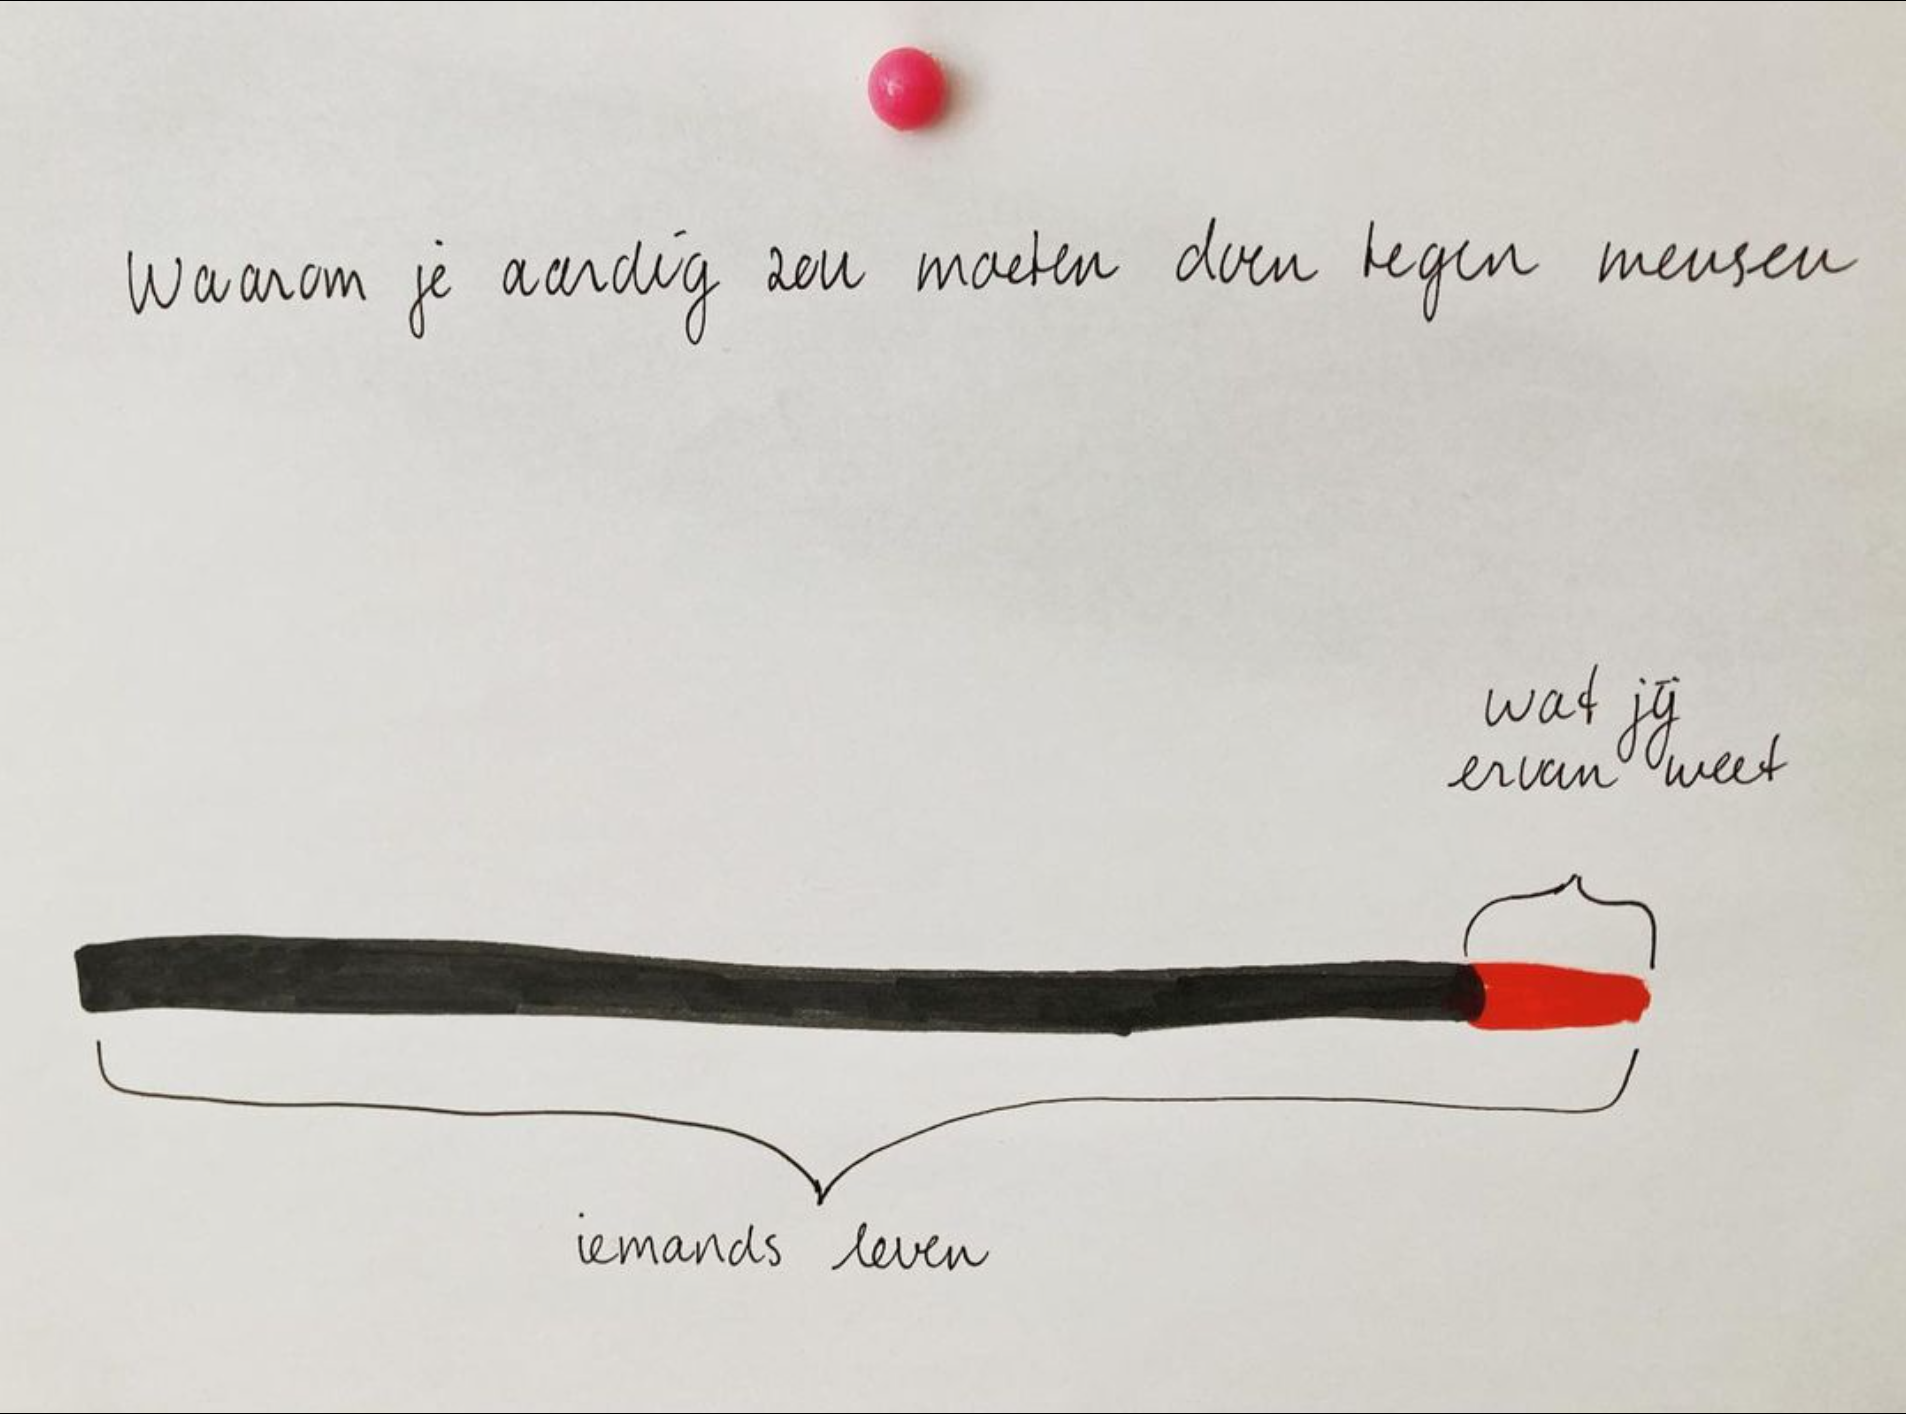 Waarom je aardig zou moeten doen tegen mensen
wat jij
ervan weet
iemands leven